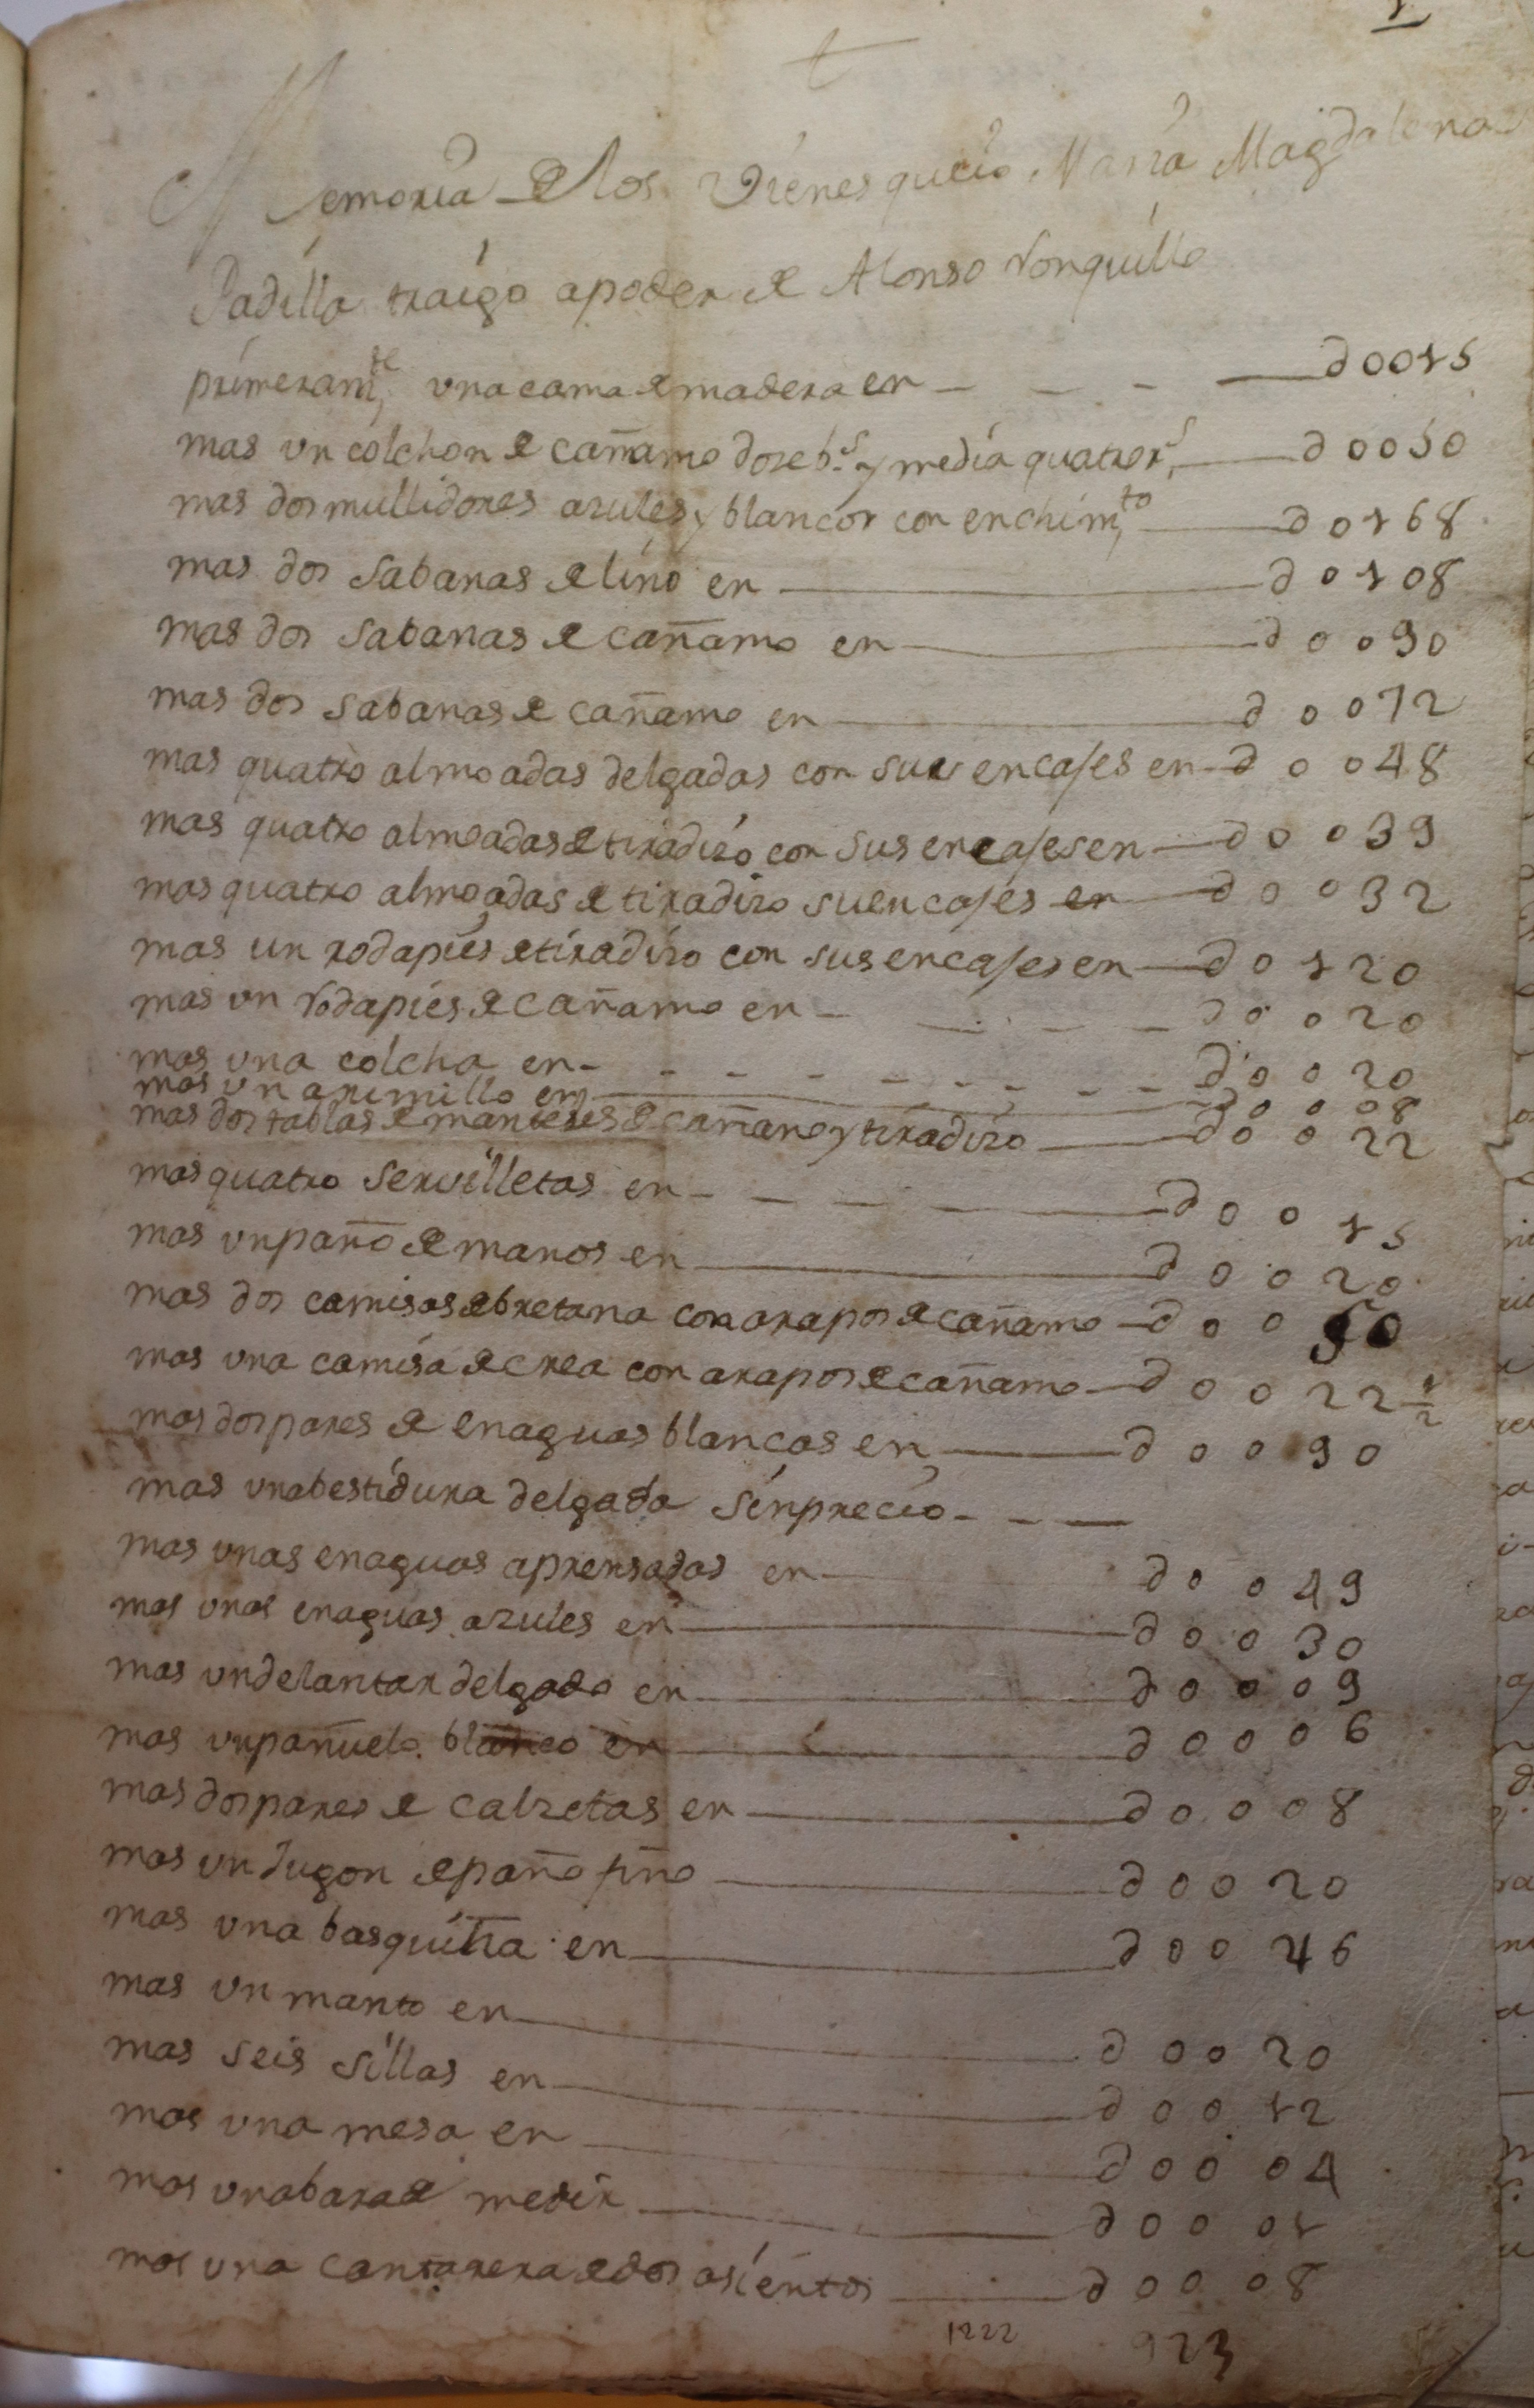 1
Memoria de los vienes que io Maria Magdalena
Padilla traigo a poder de Alonso ronquillo
primeram.te una cama de madera en — d0015
mas un colchon de cañamo doce b.s y media quatro r.s — d0050
mas dos mullidores azules y blancos con enchim.to — d0168
mas dos sabanas de lino en — d0108
mas dos sabanas de cañamo en — d0090
mas dos sabanas de cañamo en — d0072
mas quatro almoadas delgadas con sus encajes en — d0048
mas quatro almoadas de tiradizo con sus encajes en — d0039
mas quatro almoadas de tiradizo su encajes en — d0032
mas un rodapies de tiradizo con sus encajes en — d0120
mas un rodapies de cañamo en — d0020
mas una colcha en — d0020
mas un arimillo en — d0008
mas dos tablas de manteles de cañamo y tiradizo — d0022
mas quatro servilletas en — d0015
mas un paño de manos en — d0020
mas dos camisas de bretana con arapos de cañamo — d0050
mas una camisa de crea con arapos de cañamo — d0022 1/2
mas dos pares de enaguas blancas en — d0090
mas una bestidura delgada sin precio
mas unas enaguas aprensadas en — d0049
mas unas enaguas azules en — d0030
mas un delantar delgado en — d0009
mas un pañuelo blanco en — d0006
mas dos pares de calzetas en — d0008
mas un jugon de paño fino — d0020
mas una basquiña en — d0046
mas un manto en — d0020
mas seis sillas en — d0012
mas una mesa en — d0004
mas una bara de medir — d0001
mas una cantarera de dos asientos — d0008
1222 923